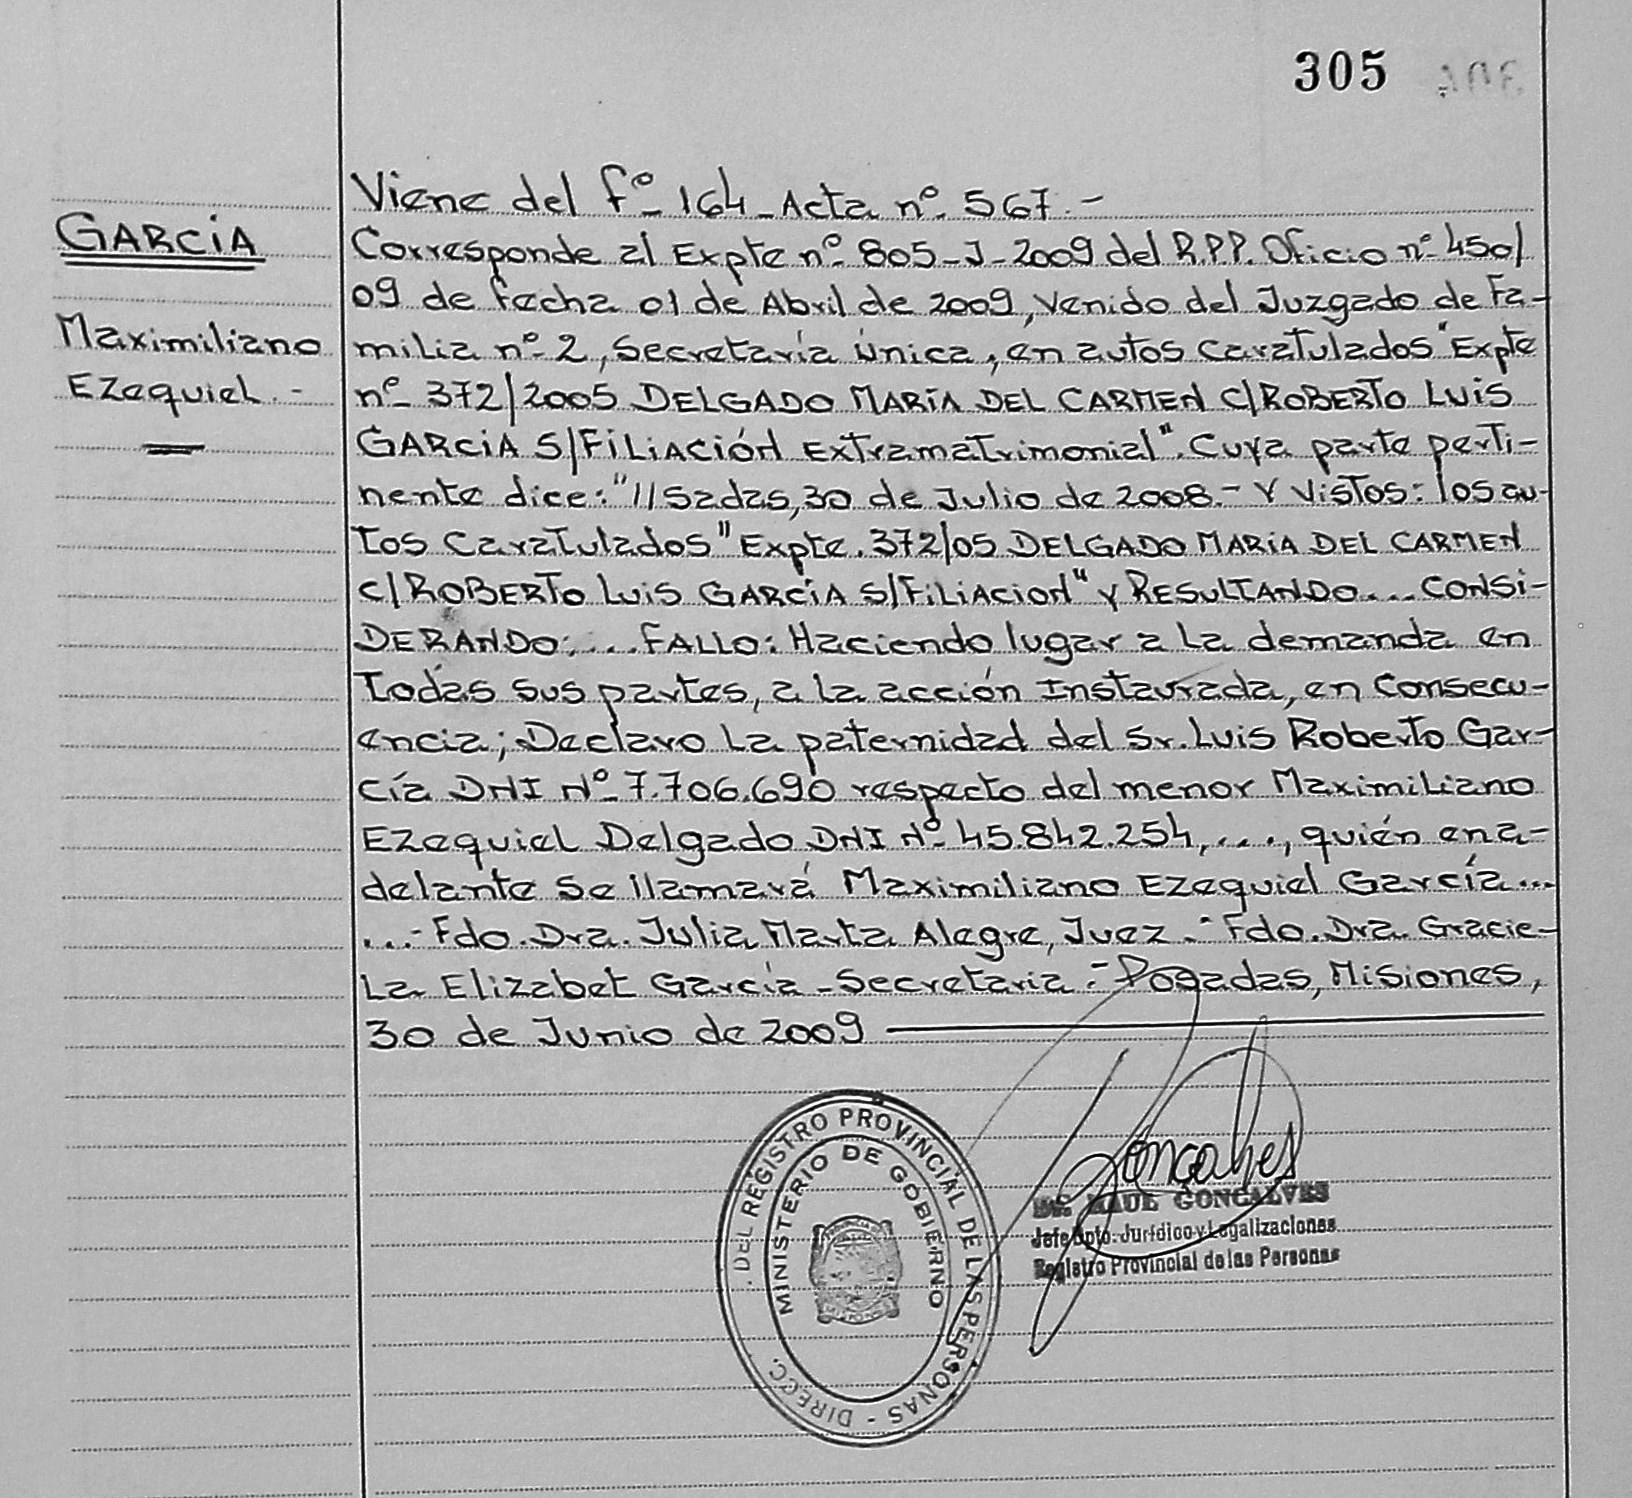 305
GARCÍA
Maximiliano
Ezequiel.-
Viene del fº 164-Acta nº 567.-
Corresponde al Expte nº 805-J-2009 del R.P.P. Oficio nº 450/
09 de fecha 01 de Abril de 2009, venido del Juzgado de Fa-
milia nº 2, Secretaría Única, en autos caratulados "Expte
nº 372/2005 DELGADO MARÍA DEL CARMEN C/ROBERTO LUIS
GARCÍA S/FILIACIÓN Extramatrimonial". Cuya parte perti-
nente dice: "//sadas, 30 de Julio de 2008.- Y VISTOS: los au-
tos caratulados "Expte. 372/05 DELGADO MARÍA DEL CARMEN
C/ROBERTO LUIS GARCÍA S/FILIACION" Y RESULTANDO.... CONSI-
DERANDO:....FALLO: Haciendo lugar a la demanda en
todas sus partes, a la acción instaurada, en consecu-
encia; Declaro la paternidad del Sr. Luis Roberto Gar-
cía DNI Nº 7.706.690 respecto del menor Maximiliano
Ezequiel Delgado DNI Nº 45.842.254,...., quién en a-
delante se llamará Maximiliano Ezequiel García...
...- Fdo. Dra. Julia Marta Alegre, Juez.- Fdo. Dra. Gracie-
la Elizabet García - Secretaria.- Posadas, Misiones,
30 de Junio de 2009
DIRECC. DEL REGISTRO PROVINCIAL DE LAS PERSONAS -
MINISTERIO DE GOBIERNO
Gonçalves
Dr. RAUL GONCALVES
Jefe Dpto. Jurídico y Legalizaciones
Registro Provincial de las Personas